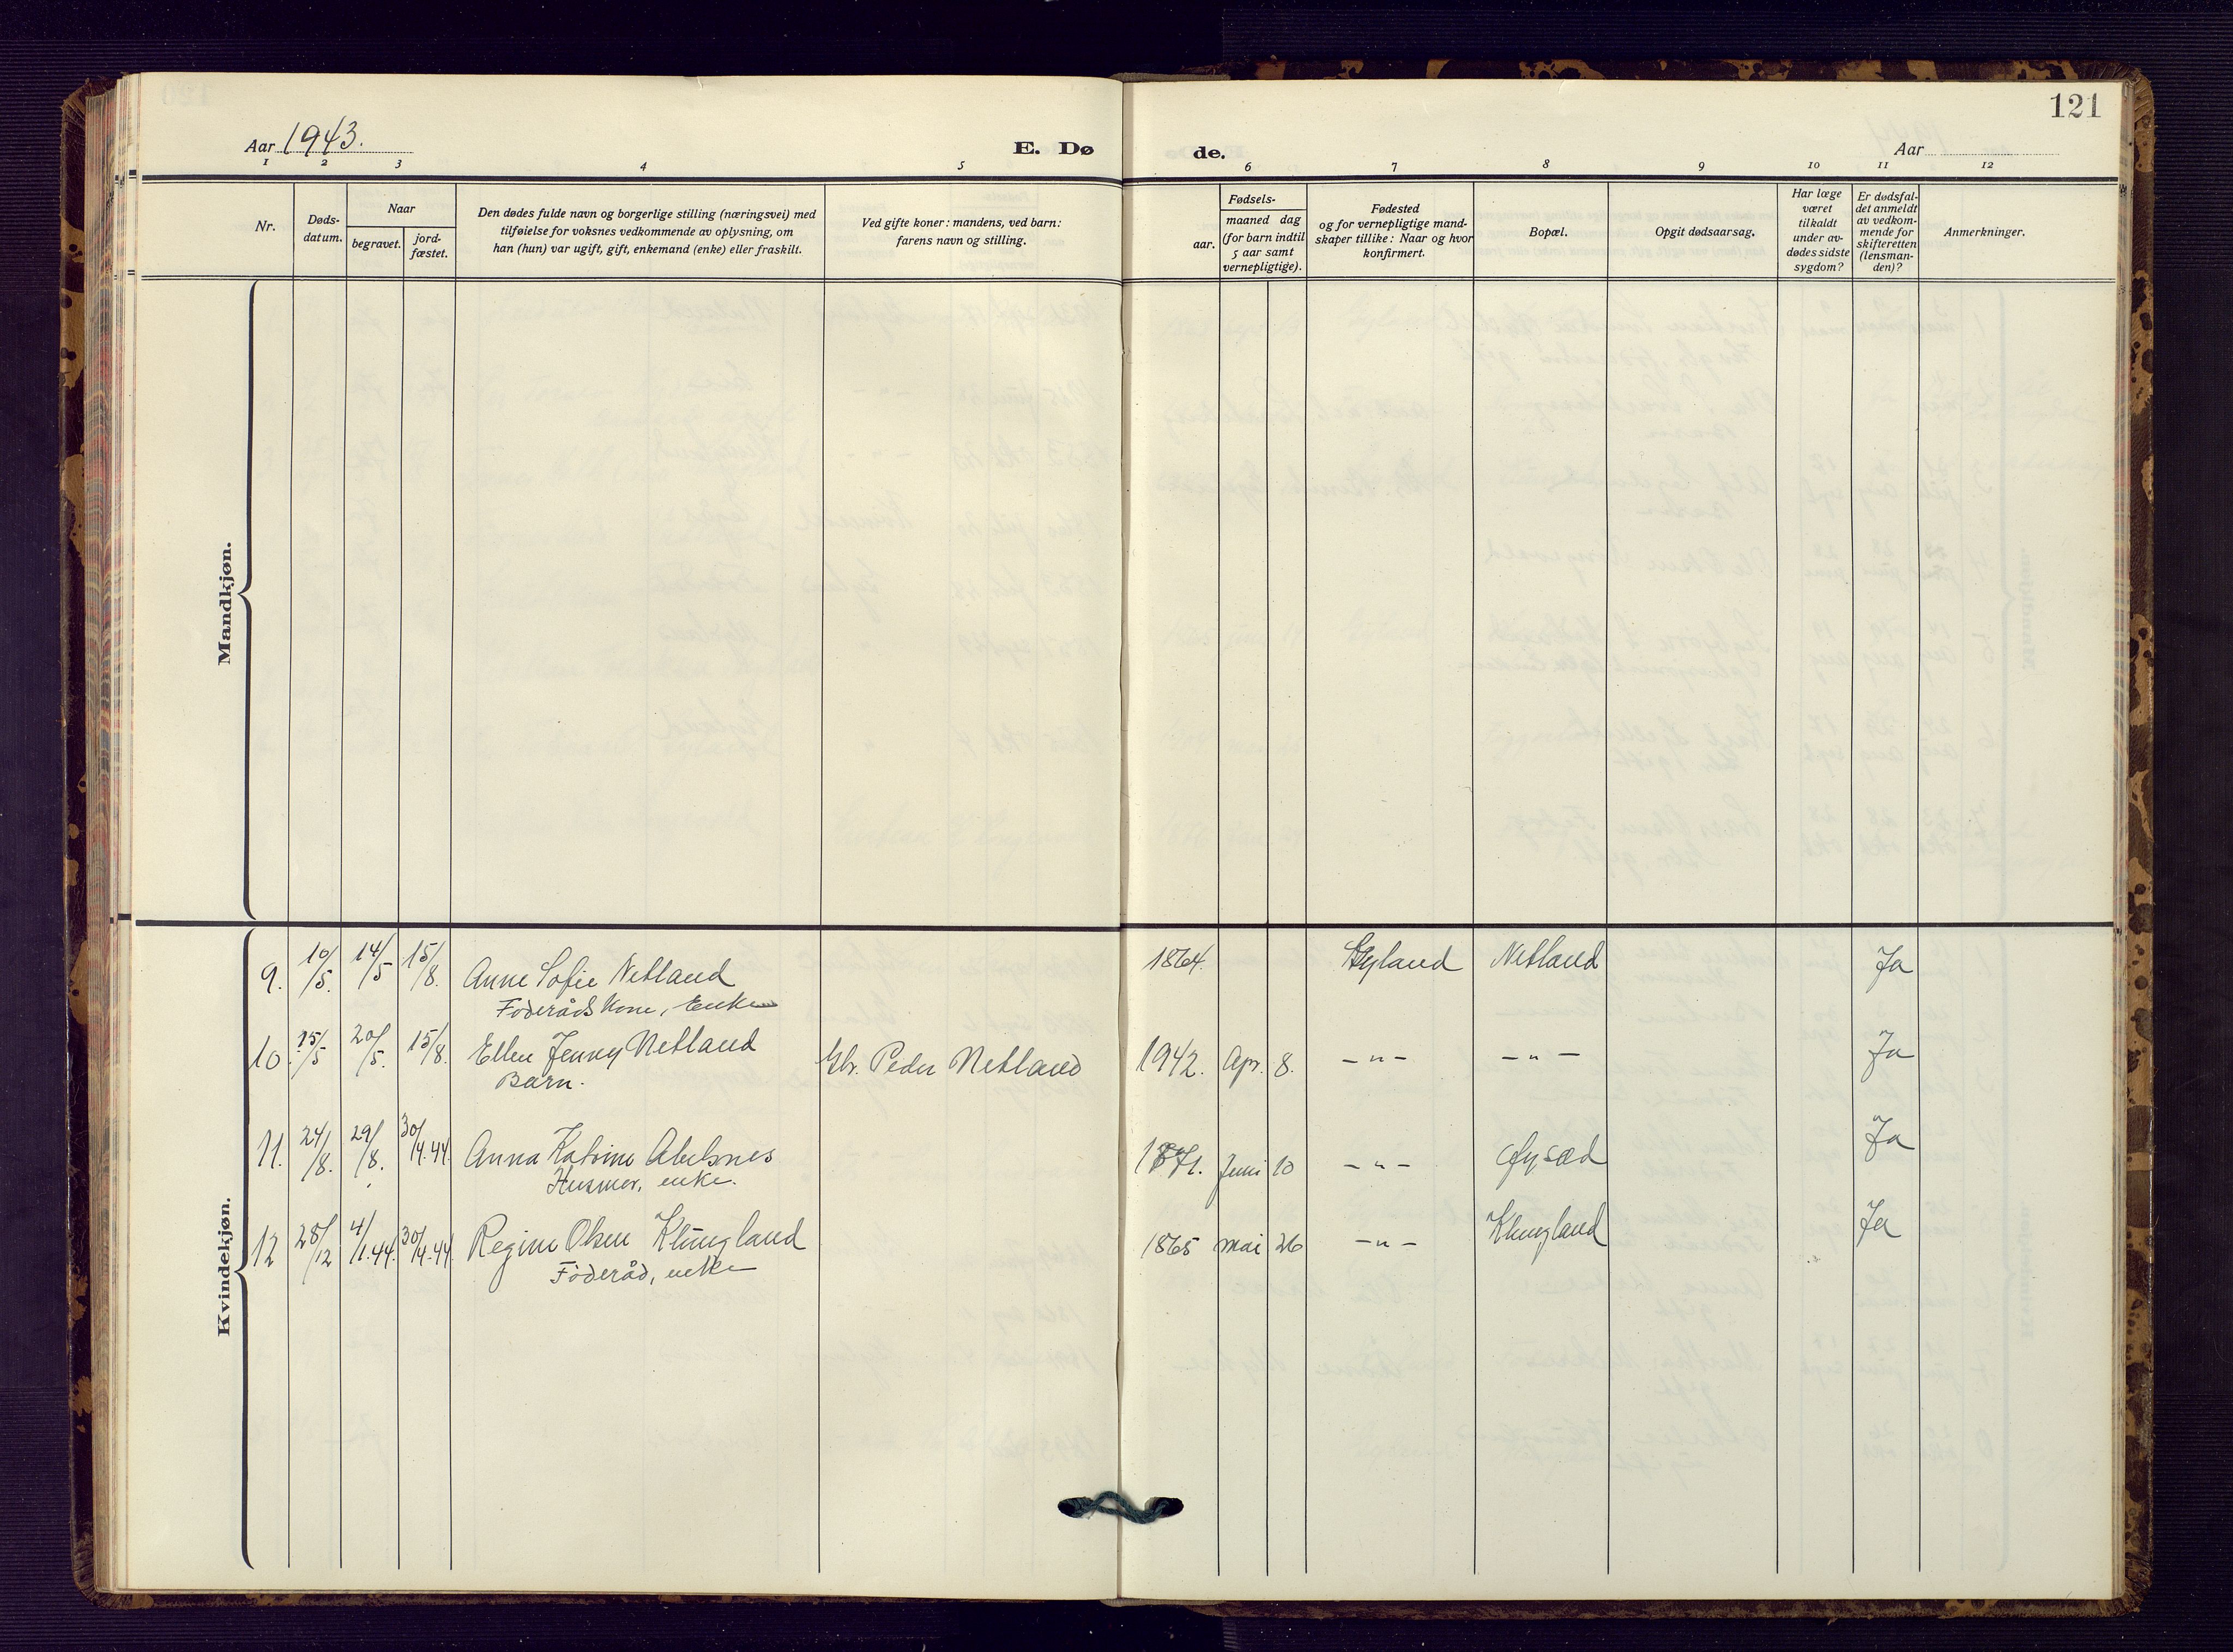 121
Aar 1943.
E. Dø de.
Aar
1 2 3 4 5 6 7 8 9 10 11 12
Nr.
Døds-
datum.
Naar
begravet.
jord-
fæstet.
Den dødes fulde navn og borgerlige stilling (næringsvei) med
tilføielse for voksnes vedkommende av oplysning, om
han (hun) var ugift, gift, enkemand (enke) eller fraskilt.
Ved gifte koner: mandens, ved barn:
farens navn og stilling.
Fødsels-
aar.
maaned dag
(for barn indtil
5 aar samt
vernepligtige).
Fødested
og for vernepligtige mand-
skaper tillike: Naar og hvor
konfirmert.
Bopæl.
Opgit dødsaarsag.
Har læge
været
tilkaldt
under av-
dødes sidste
sygdom?
Er dødsfal-
det anmeldt
av vedkom-
mende for
skifteretten
(lensman-
den)?
Anmerkninger.
Mandkjøn.
Kvindekjøn.
9. 10/5. 14/5 15/8. Anne Sofie Netland 1864. Gyland Netland Ja
Föderådskone, Enke
10. 15/5 20/5. 15/8. Ellen Jenny Netland Gbr. Peder Netland 1942. Apr. 8. -"- -"- Ja
Barn.
11. 24/8. 29/8. 30/4.44. Anna Katrine Abelsnes 1871. Juni 10 -"- Øysæd Ja
Husmor, enke.
12 28/12 4/1.44. 30/4.44. Regine Olsen Klungland 1865 Mai 26 -"- Klungland Ja
Föderåd, enke